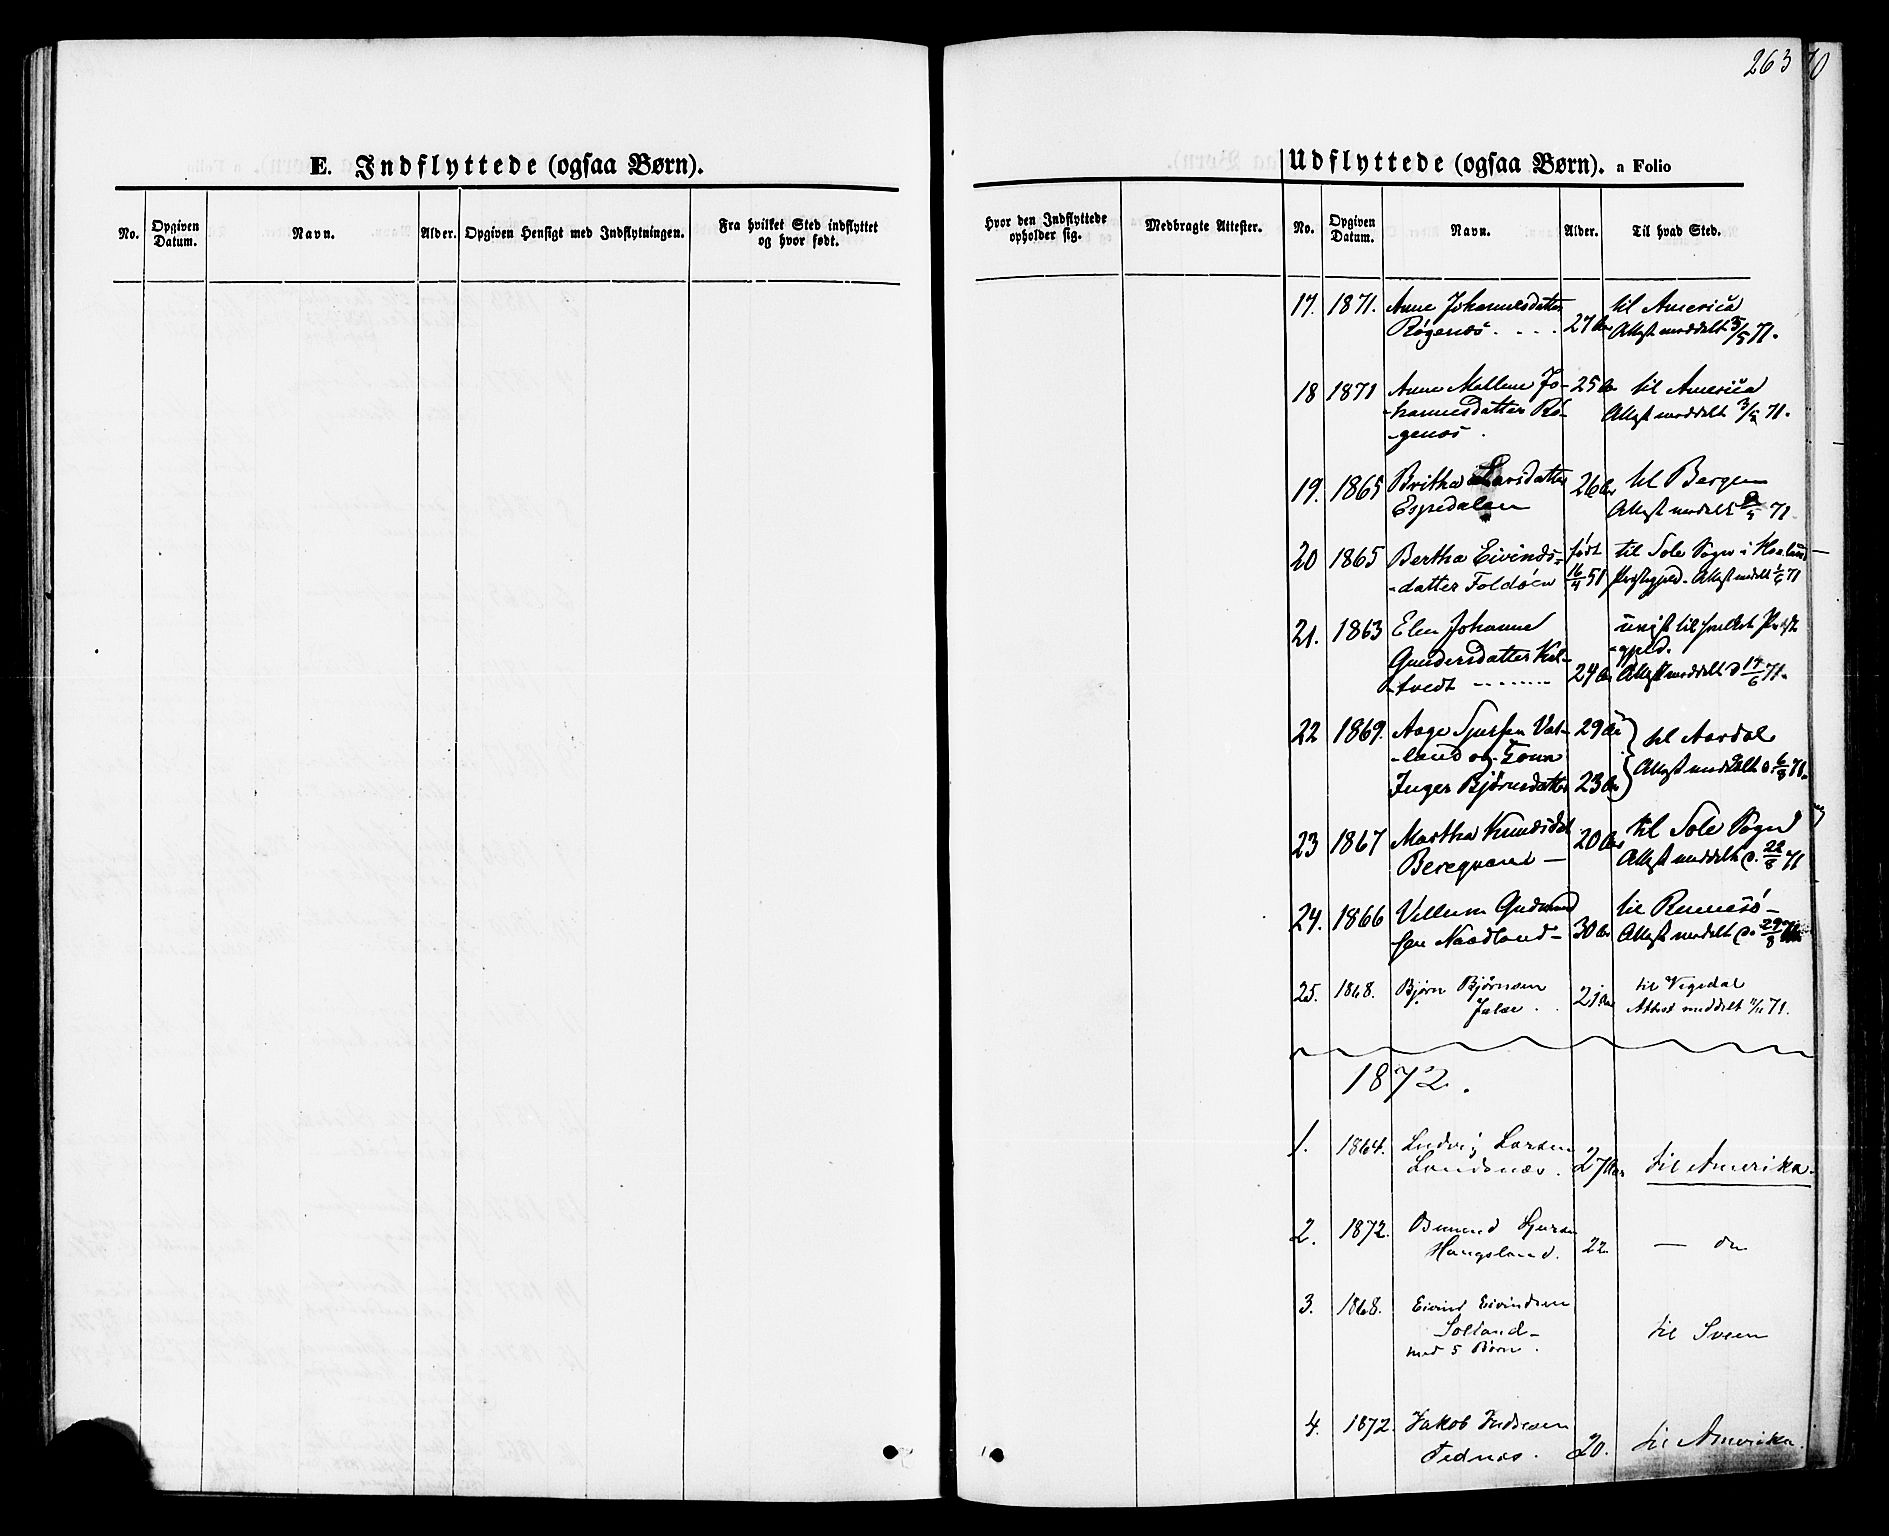 263
70
E. Indflyttede (ogsaa Børn).
No.
Opgiven Datum.
Navn.
Alder.
Opgiven Hensigt med Indflytningen.
Fra hvilket Sted indflyttet
og hvor født.
Udflyttede (ogsaa Børn). a Folio
Hvor den Indflyttede
opholder sig.
Medbragte Attester.
No.
Opgiven Datum.
Navn.
Alder.
Til hvad Sted.
17. 1871. Anne Johannesdatter til America
Røgenes. . . . 27 Aar Attest meddelt 3/5 71.
18 1871 Anne Mallene Jo- 25 Aar til America
-hannesdatter Rö- Attest meddelt 3/5 71.
-genes.
19. 1865 Britha Larsdatter 26 Aar til Bergen
Espedalen Attest meddelt 71
20 1865 Bertha Eivinds- født til Sole Sogn i Haaland
-datter Foldöen 16/4 51 Præstegjeld. Attest meddelt 71
21. 1863 Elen Johanne
Gundersdatter Kal- -gjeld.
-tvedt 24 Aar Attest meddelt d 14/6 71.
22 1869. Aage Sjursen Vat- 29 Aar til Aardal
-land og Kone Attest meddelt d. 6/8 71.
Inger Bjørnsdatter 23 Aar
23 1867 Martha Knudsdat 20 Aar til Sole Sogn
Attest meddelt d. 22/8 71
24. 1866 Villum Gudmund til Rennesö-
-sen Nordland- 30 Aar Attest meddelt d. 29/8 71.
25. 1868. Bjørn Bjørnsen 21 Aar til Vigedal
Attest meddelt 71.
1872.
1. 1864. Ludvig Larsen
Landsnæs. 27 Aar til Amerika.
2. 1872. Sjursen
Haugsland. 22. — do
3. 1868. Eivind Eivindsen
til Sveen
med 5 Børn.
4. 1872. Jakob
Tednes. 20. til Amerika.